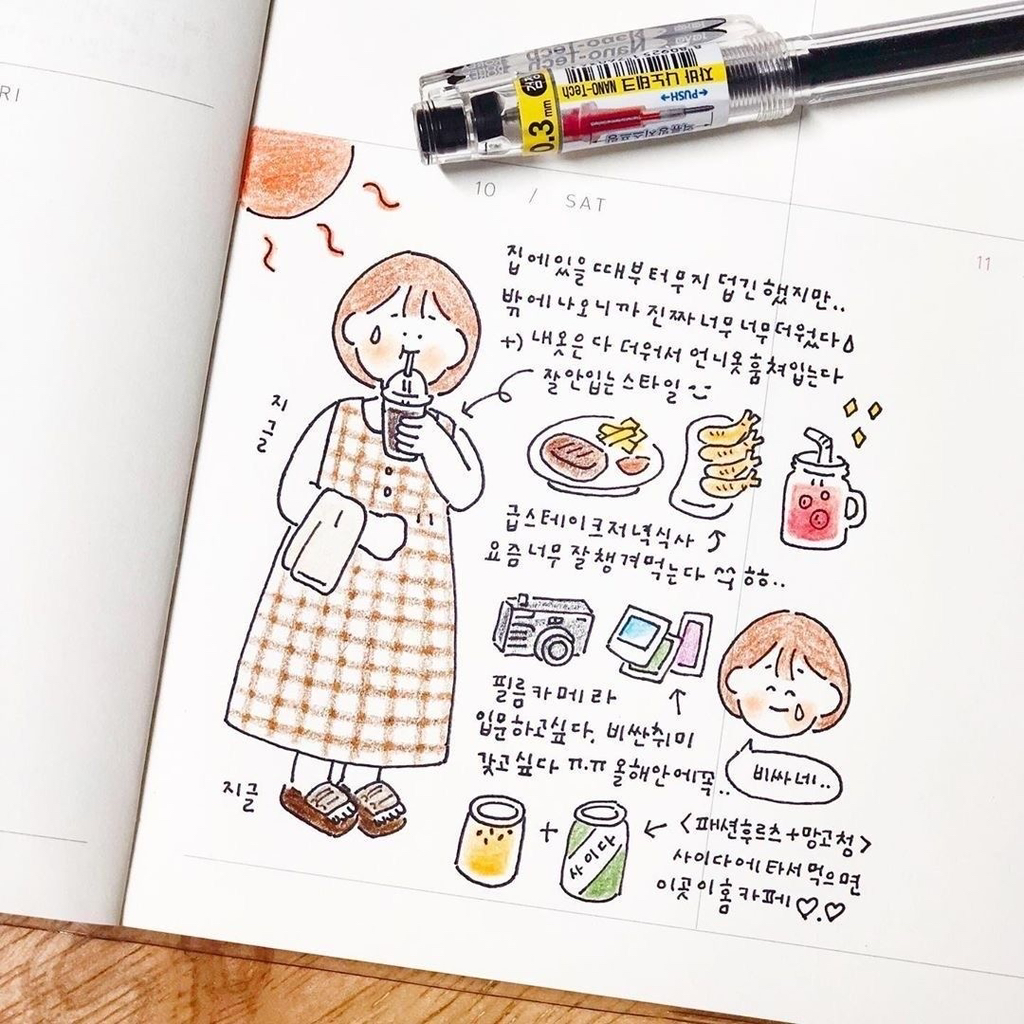 RI
Nano-Tech
자바 나노테크 NANO-Tech
←PUSH→
0.3mm
10 / SAT
11
집에있을때부터무지 덥긴했지만..
밖에나오니까 진짜너무너무더웠다
+) 내옷은다 더워서 언니옷훔쳐입는다
잘안입는스타일
지글
급스테이크저녁식사
요즘너무 잘챙겨먹는다 ^^ ㅎㅎ..
필름카메라
입문하고싶다. 비싼취미
갖고싶다 ㅠ.ㅠ 올해안에꼭..
비싸네..
지글
+
사이다
<패션후르츠+망고청>
사이다에타서먹으면
이곳이홈카페♡.♡